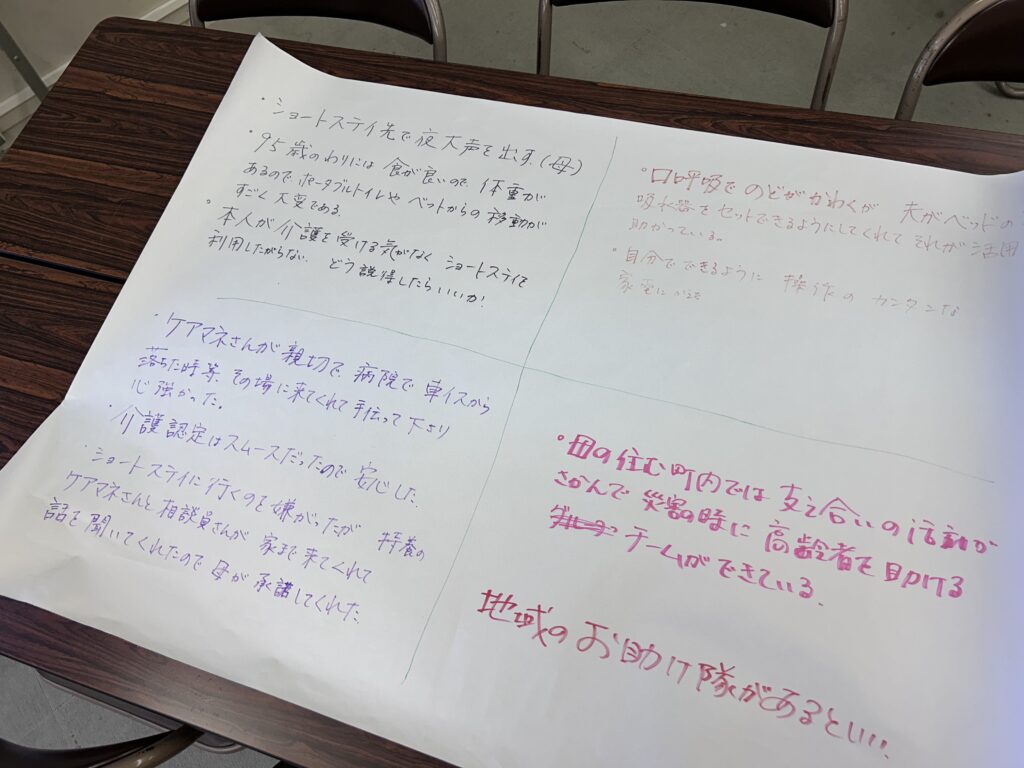 ・ショートステイ先で夜大声を出す(母)
・95歳のわりには食が良いので、体重が
あるのでポータブルトイレやベットからの移動が
すごく大変である.
・本人が介護を受ける気がなく ショートステイを
利用したがらない. どう説得したらいいか!
・口呼吸で のどがかわくが 夫がベッドの
吸水器をセットできるようにしてくれて それが活用
助かっている。
・自分でできるように 操作のカンタンな
家電に
・ケアマネさんが親切で、病院で車イスから
落ちた時等、その場に来てくれて手伝って下さり
心強かった。
・介護認定はスムースだったので安心した.
・ショートステイに行くのを嫌がったが 特養の
ケアマネさんと相談員さんが 家まで来てくれて
話を聞いてくれたので 母が承諾してくれた.
・母の住む町内では 支え合いの活動が
さかんで 災害の時に高齢者を助ける
チームができている.
地域のお助け隊があるといい..